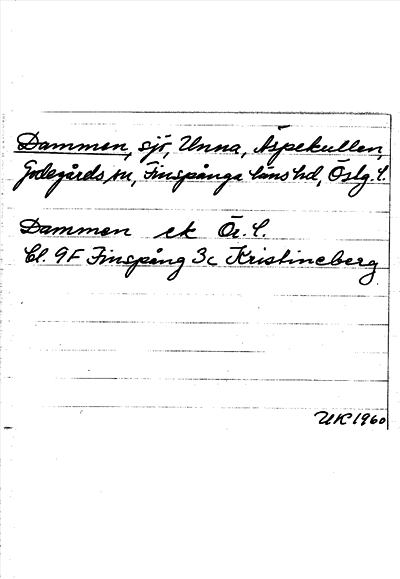 Dammen, sjö, Unna, Äspekullen,
Godegårds sn, Finspånga läns hd, Östg. l.
Dammen ek Ör. l.
Bl. 9F Finspång 3c Kristineberg
UK 1960